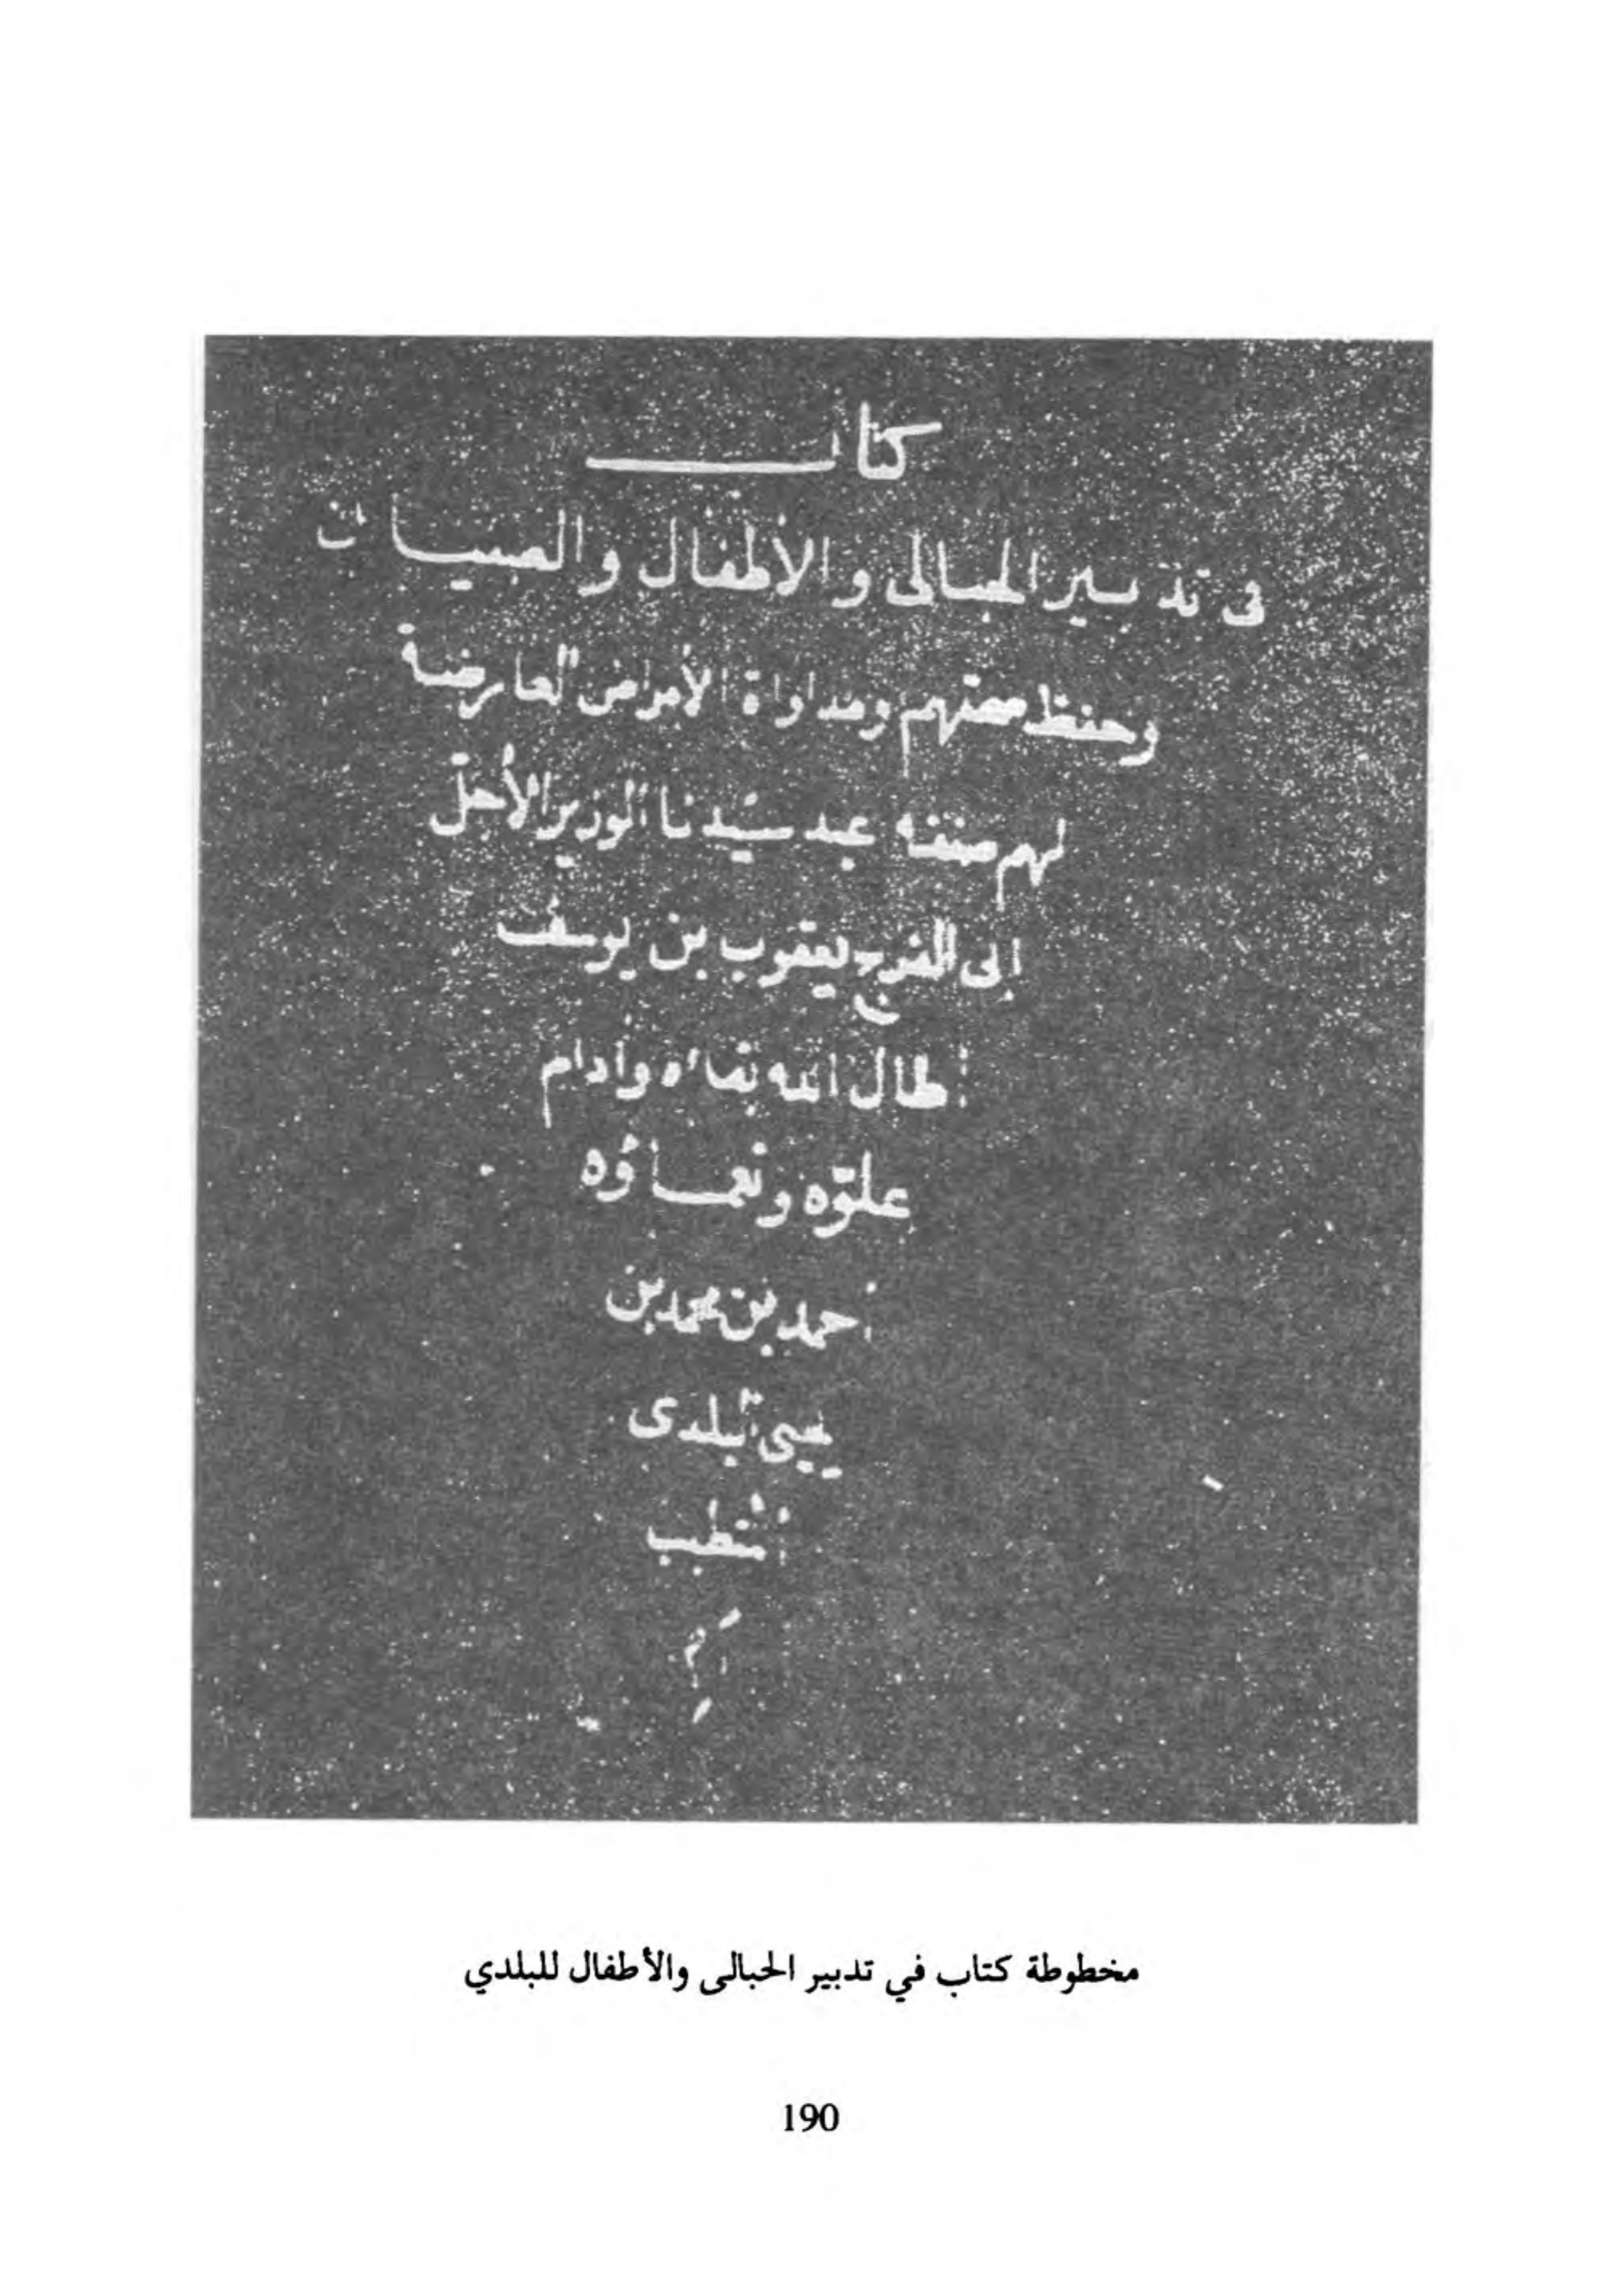 كتاب
فى تدبير الحبالى والأطفال والصبيان
وحفظ صحتهم ومداواة الأمراض العارضة
لهم صنفه عبد سيّدنا الوزير الأجلّ
ابى الفرج يعقوب بن يوسف
أطال الله بقاءه وأدام
علوّه ونعماؤه
أحمد بن محمد بن
يحيى البلدى
المتطبب
مخطوطة كتاب في تدبير الحبالى والأطفال للبلدي
190